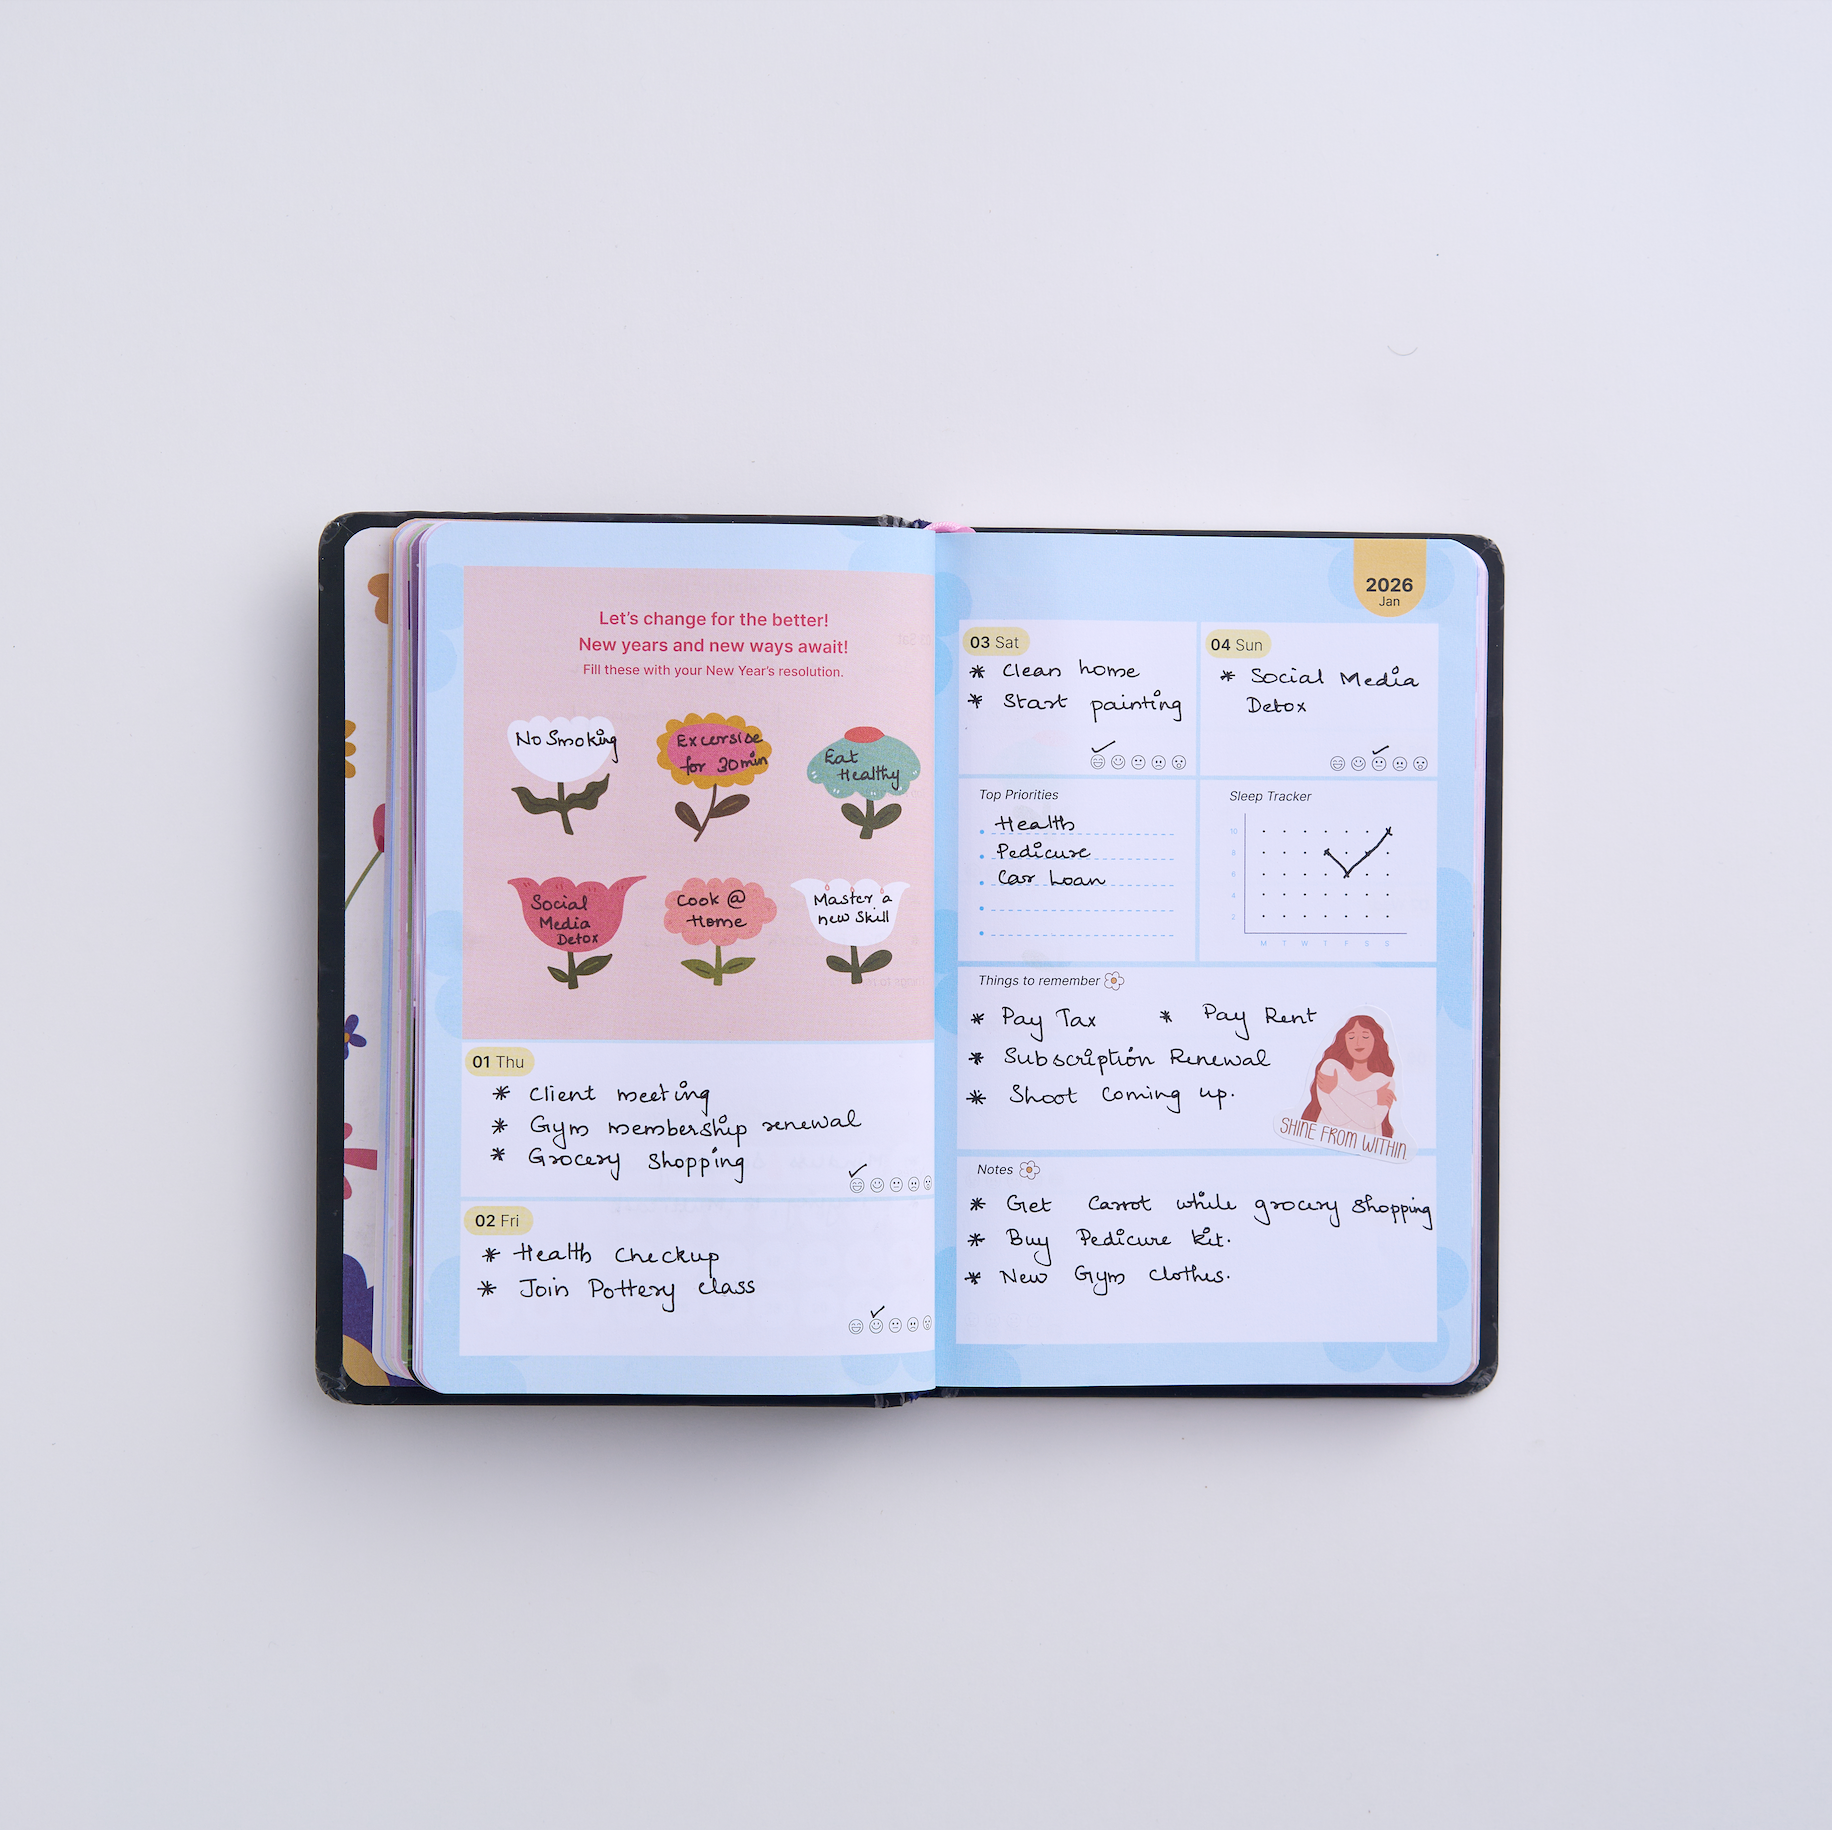 Let's change for the better!
New years and new ways await!
Fill these with your New Year's resolution.
No Smoking
Excersise
for 30min
Eat
Healthy
Social
Media
Detox
Cook @
Home
Master a
new Skill
01 Thu
* Client meeting
* Gym membership renewal
* Grocery Shopping
02 Fri
* Health Checkup
* Join Pottery class
2026
Jan
03 Sat
* Clean home
* Start painting
04 Sun
* Social Media
Detox
Top Priorities
Health
Pedicure
Car Loan
Sleep Tracker
10
8
6
4
2
M T W T F S S
Things to remember
* Pay Tax * Pay Rent
* Subscription Renewal
* Shoot Coming up.
SHINE FROM WITHIN.
Notes
* Get Carrot while grocery Shopping
* Buy Pedicure kit.
* New Gym Clothes.